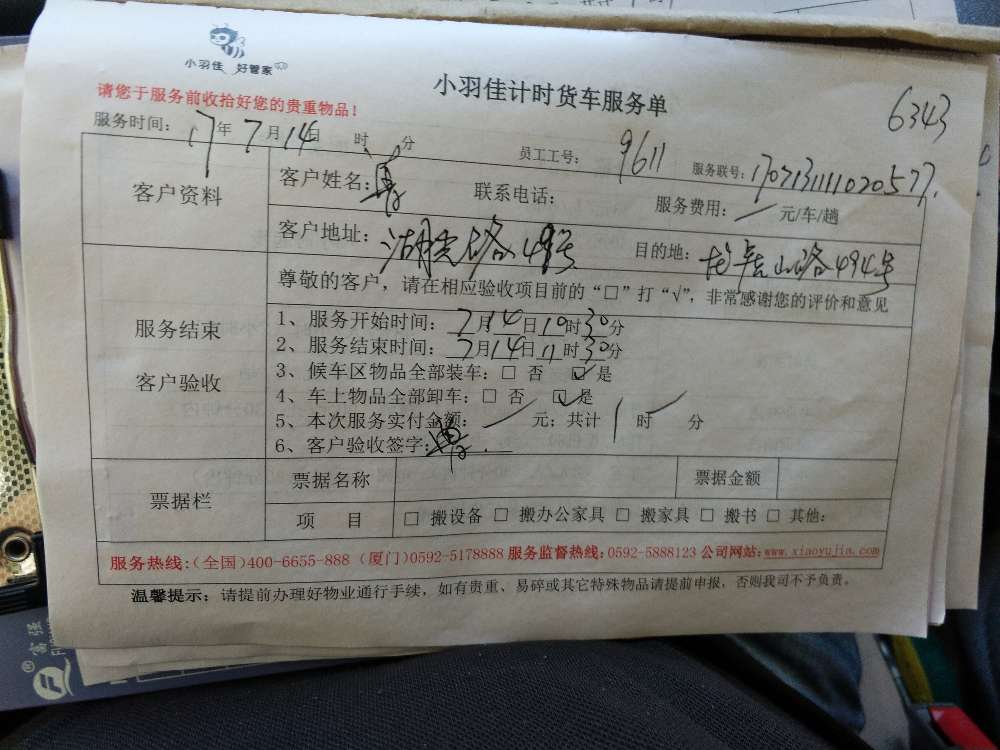 小羽佳 好管家
小羽佳计时货车服务单
6343
请您于服务前收拾好您的贵重物品！
服务时间： 17年7月14日 时 分 员工工号： 9611 服务联号：
客户资料
客户姓名： 联系电话： 服务费用： 元/车/趟
客户地址： 49号 目的地： 山路494号
服务结束
客户验收
尊敬的客户，请在相应验收项目前的“□”打“√”，非常感谢您的评价和意见
1、服务开始时间：7月14日10时30分
2、服务结束时间：7月14日11时30分
3、候车区物品全部装车：□ 否 ☑ 是
4、车上物品全部卸车：□ 否 ☑ 是
5、本次服务实付金额： 元；共计 1 时 分
6、客户验收签字：
票据栏
票据名称 票据金额
项 目 □ 搬设备 □ 搬办公家具 □ 搬家具 □ 搬书 □ 其他：
服务热线：（全国）400-6655-888（厦门）0592-5178888 服务监督热线：0592-5888123 公司网站：www.xiaoyujia.com
温馨提示：请提前办理好物业通行手续，如有贵重、易碎或其它特殊物品请提前申报，否则我司不予负责。
富强